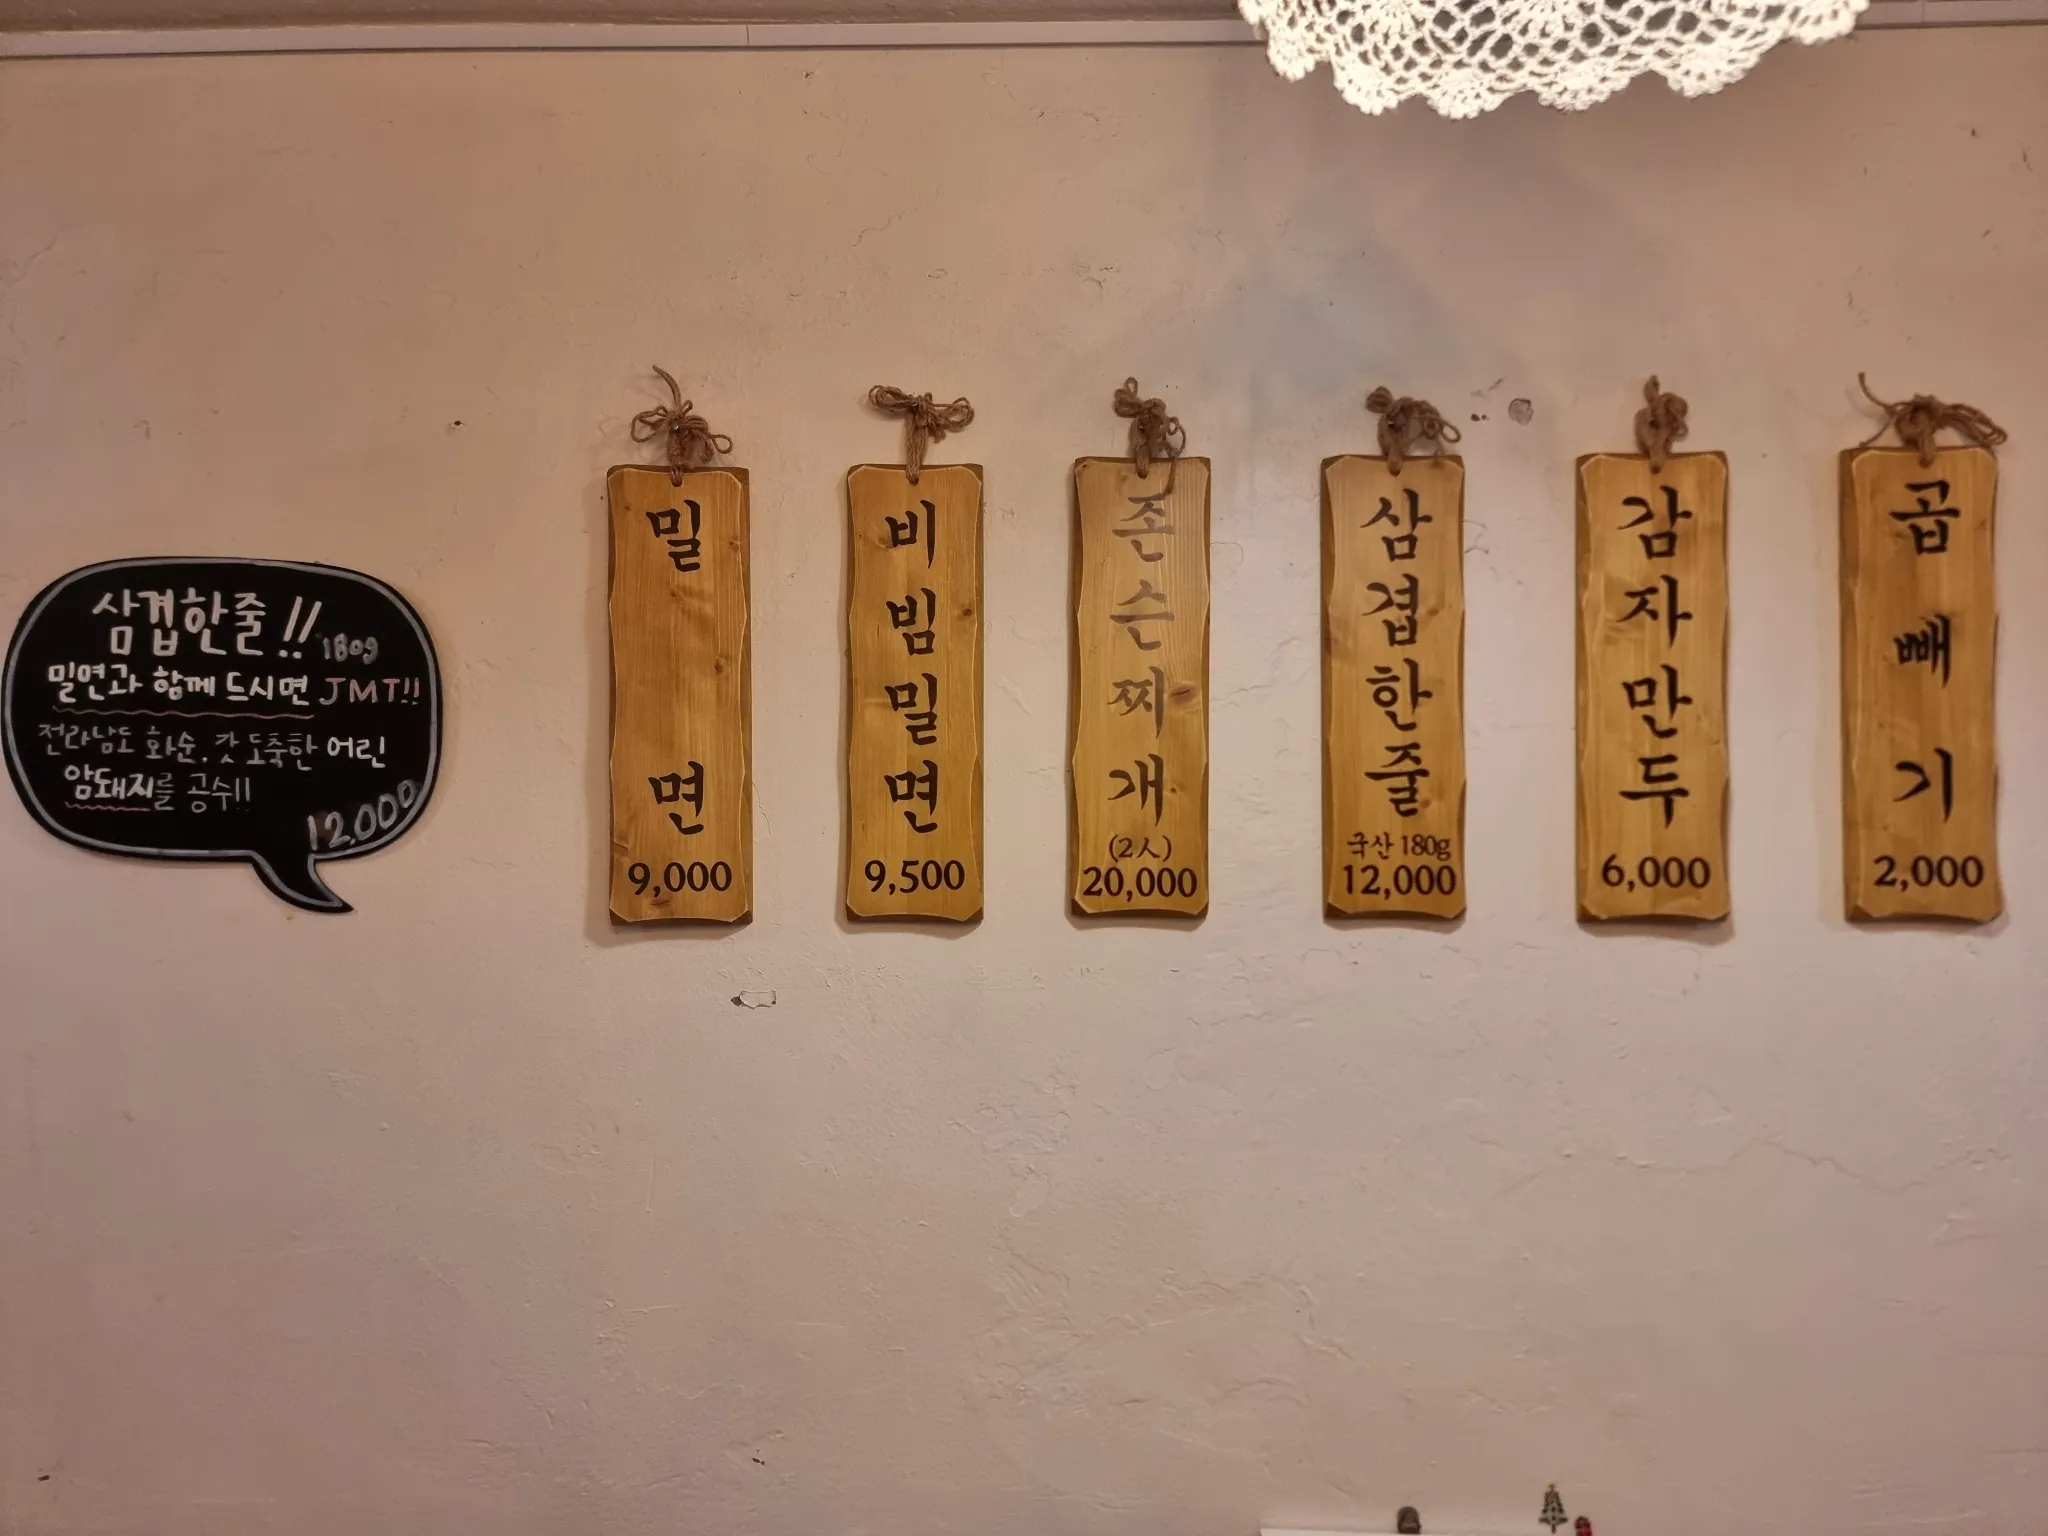 삼겹한줄!! 180g
밀면과 함께 드시면 JMT!!
전라남도 화순. 갓 도축한 어린
암돼지를 공수!!
12,000
밀면
9,000
비빔밀면
9,500
존슨찌개
(2人)
20,000
삼겹한줄
국산 180g
12,000
감자만두
6,000
곱빼기
2,000